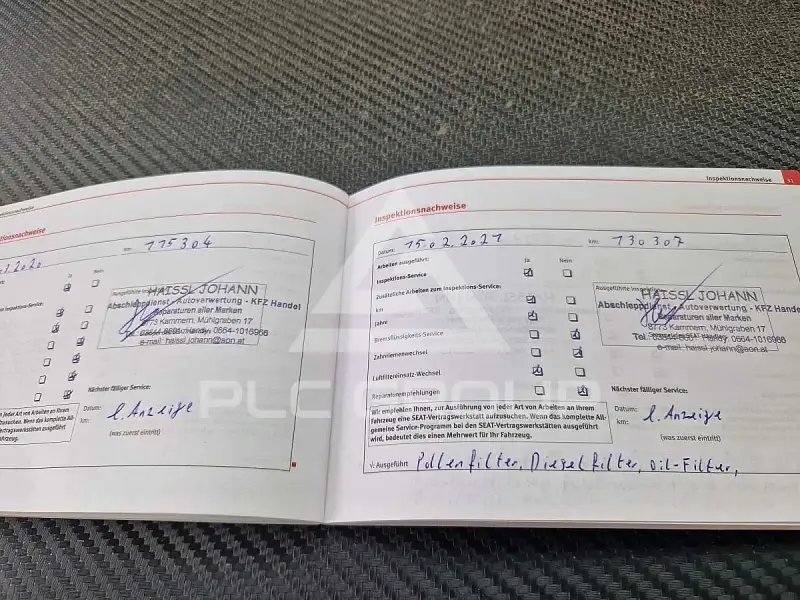 Inspektionsnachweise
tionsnachweise
km: 115304
Ja Nein
HAISSL JOHANN
Abschleppdienst - Autoverwertung - KFZ Handel
Reparaturen aller Marken
8773 Kammern, Mühlgraben 17
Tel. 03844-8601, Handy: 0664-1016966
e-mail: haissl.johann@aon.at
Nächster fälliger Service:
Datum: l. Anzeige
km:
(was zuerst eintritt)
Inspektionsnachweise 31
Inspektionsnachweise
Datum: 15.02.2021 km: 130307
Arbeiten ausgeführt: Ja Nein
Inspektions-Service
Zusätzliche Arbeiten zum Inspektions-Service:
km
Jahre
Bremsflüssigkeits-Service
Zahnriemenwechsel
Luftfiltereinsatz-Wechsel
Reparaturempfehlungen
Wir empfehlen Ihnen, zur Ausführung von jeder Art von Arbeiten an Ihrem
Fahrzeug eine SEAT-Vertragswerkstatt aufzusuchen. Wenn das komplette All-
gemeine Service-Programm bei den SEAT-Vertragswerkstätten ausgeführt
wird, bedeutet dies einen Mehrwert für Ihr Fahrzeug.
HAISSL JOHANN
Abschleppdienst - Autoverwertung - KFZ Handel
Reparaturen aller Marken
8773 Kammern, Mühlgraben 17
Tel. 03844-8601, Handy: 0664-1016966
e-mail: haissl.johann@aon.at
Nächster fälliger Service:
Datum: l. Anzeige
km:
(was zuerst eintritt)
√: Ausgeführt Pollenfilter, Dieselfilter, Oil-Filter,
PLC GROUP